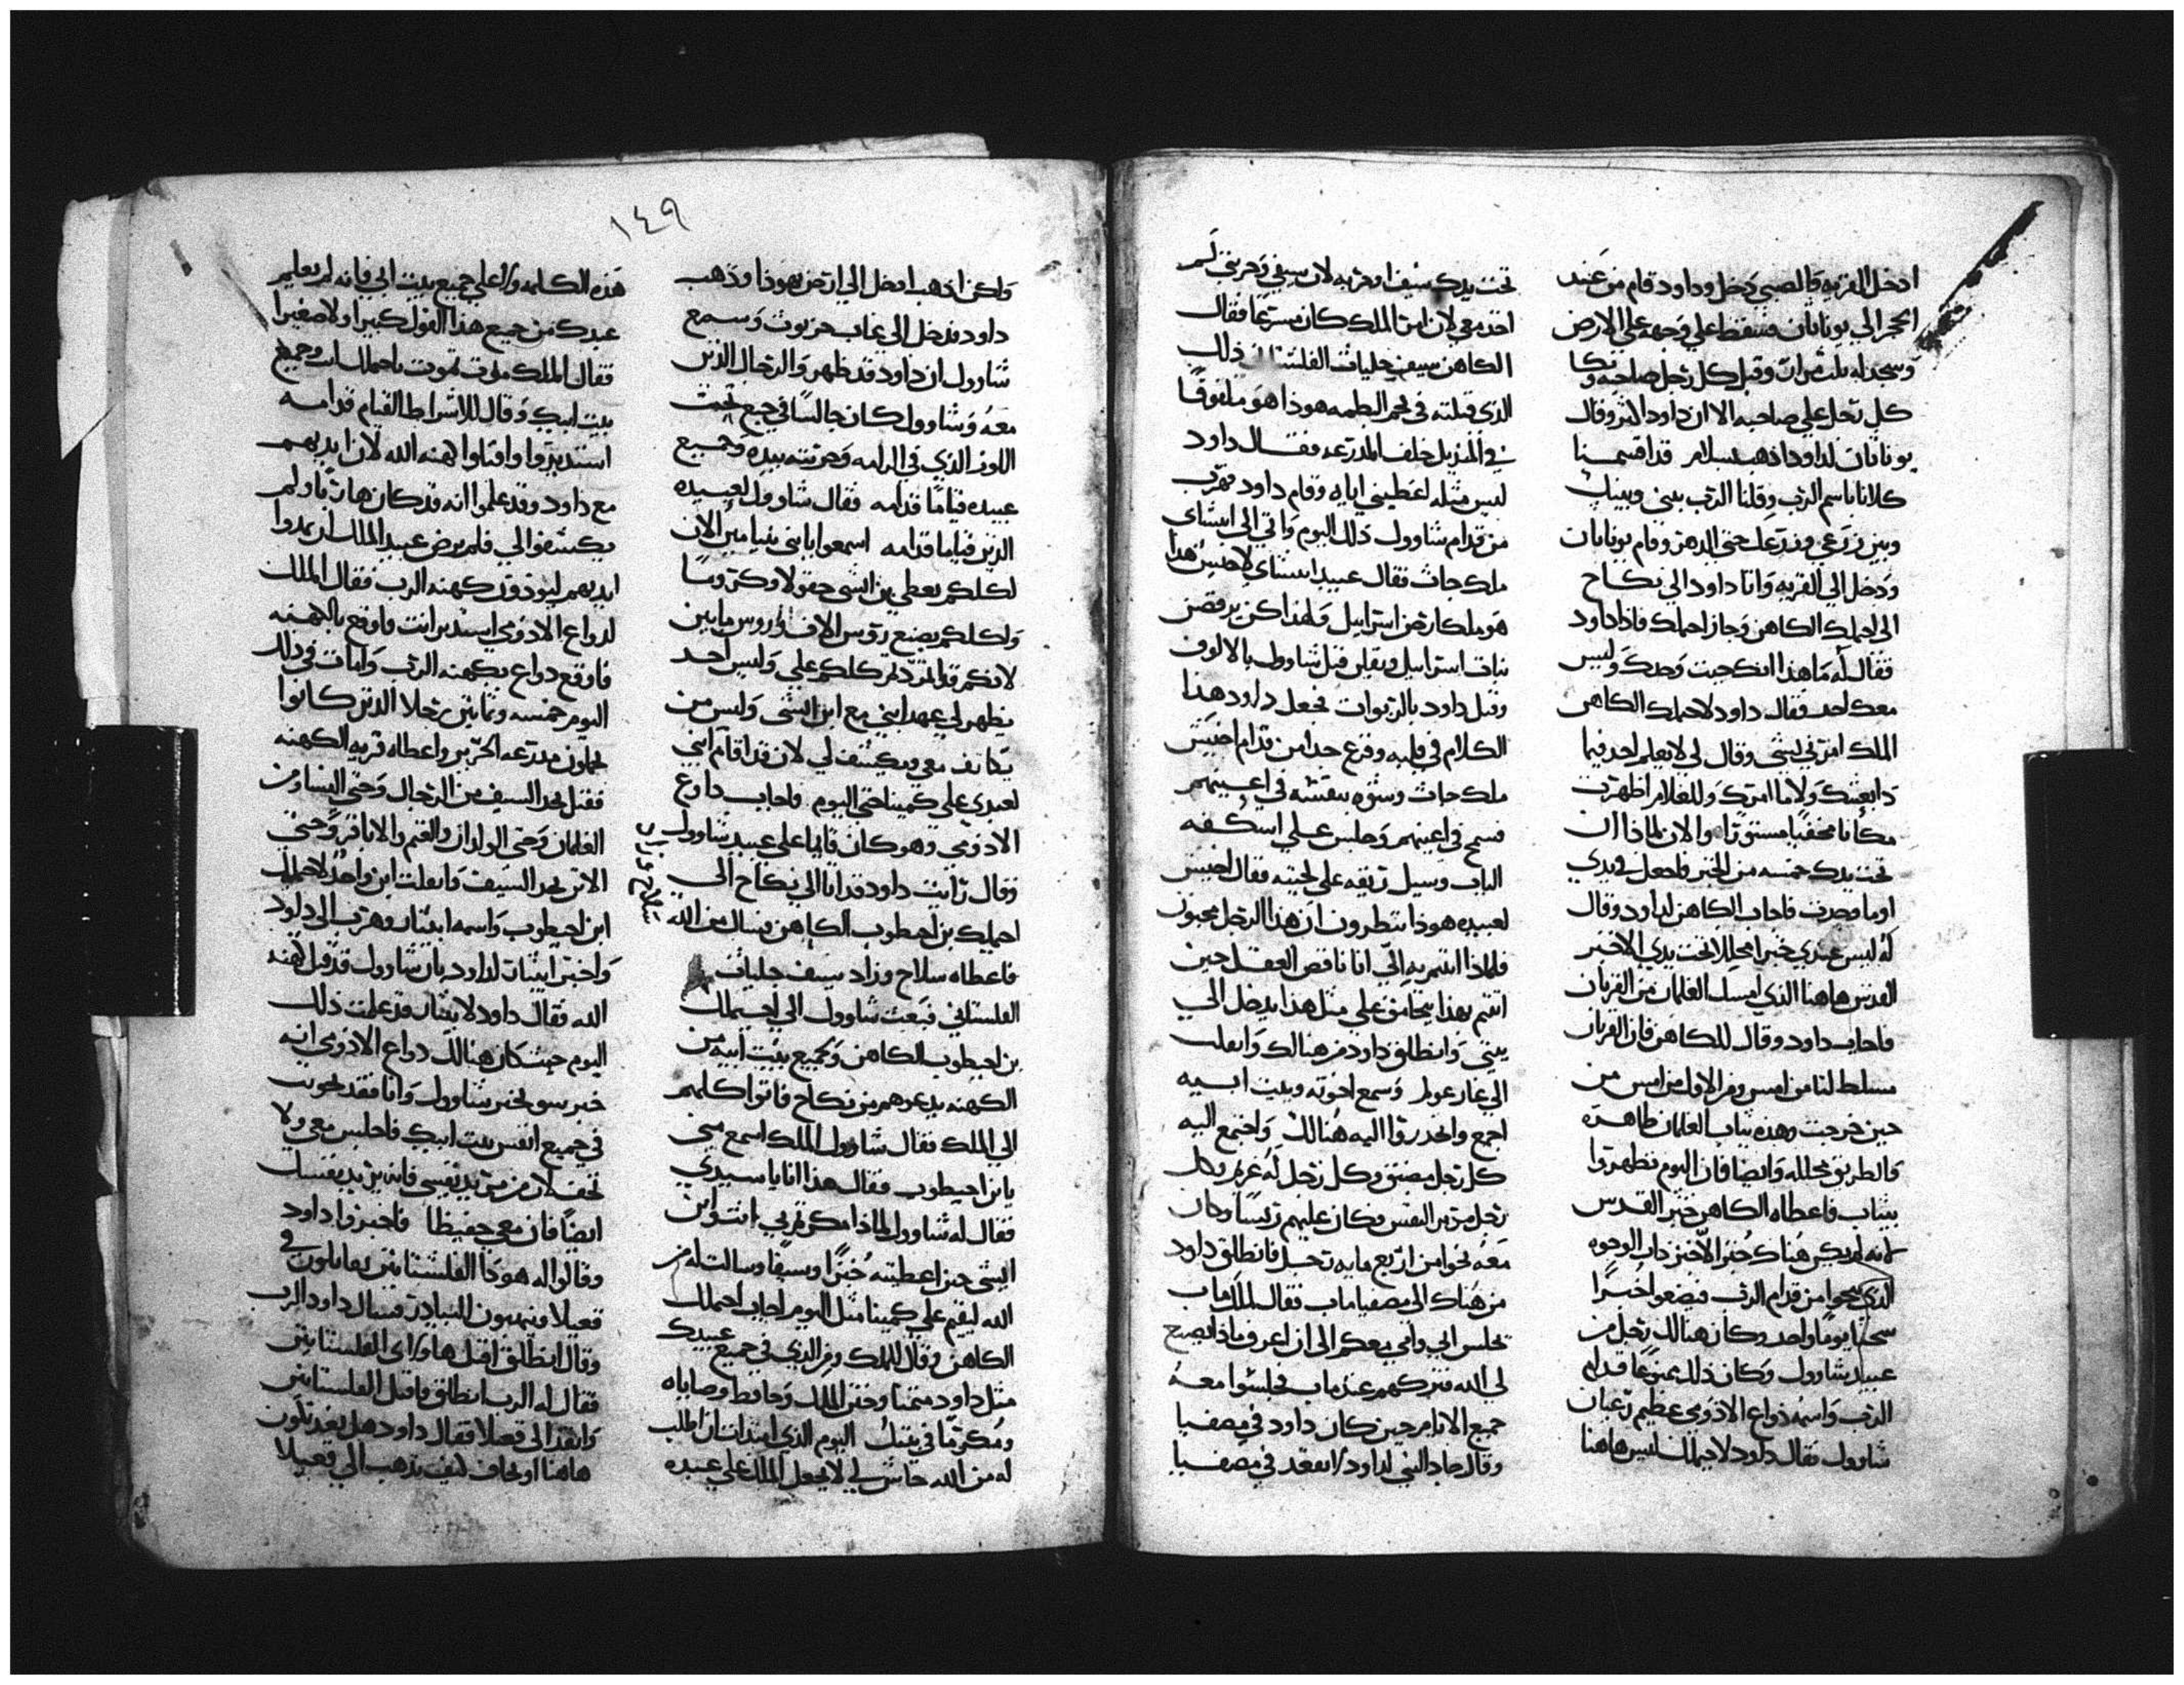 ادخل القريه والصبي دخل وداود قام من عند
الحجر الي يوناثان فسقط علي وجهه علي الارض
وسجد له ثلث مرات وقبل كل رجل صاحبه وبكا
كل رجل علي صاحبه الا ان داود اكثر وقال
يوناثان لداود اذهب بسلام قد اقسمنا
كلانا باسم الرب وقلنا الرب بيني وبينك
وبين زرعي وزرعك حتي الدهر وقام يوناثان
ودخل الي القريه واتا داود الي نكاح
الي احملك الكاهن وجاز احملك فاذا داود
فقال له ما هذا انك جيت وحدك وليس
معك احد فقال داود لاحملك الكاهن
الملك امرني بشي وقال لي لا يعلم احد فيما
ابعثك ولا ما امرتك وللغلام اظهرت
مكانا مخفيا مستورا والان لماذا ان
تحت يدك خمسه من الخبز فاجعل في يدي
او ما وجدت فاجاب الكاهن لداود وقال
له ليس عندي خبزا محللا تحت يدي الا خبز
القدس هاهنا الذي امسك الغلمان من القربان
فاجاب داود وقال للكاهن فان القربان
مسلط لنا من امس ومن الاول من امس من
حين خرجت وهذه ثياب الغلمان طاهره
والطريق محلله وايضا فان اليوم تطهروا
بثياب فاعطاه الكاهن خبز القدس
لانه لم يكن هناك خبزا الا خبز ذات الوجوه
الذي نحوا من قدام الرب فيضعوا خبزا
سخنا يوما واحد وكان هنالك رجل من
عبيد شاوول وكان ذلك ممنوعا قدام
الرب واسمه دواع الادومي عظيم رعيان
شاوول فقال داود لاحيملك ليس هاهنا
تحت يدك سيف او حربه لان سيفي وحربتي لم
اخذ معي لان امر الملك كان مسرعا فقال
الكاهن سيف جليات الفلستاني ذلك
الذي قتلته في مجمر البطمه هوذا هو ملفوفا
في المنديل خلف المدرعه فقال داود
ليس مثله اعطيني اياه وقام داود فهرب
من قدام شاوول ذلك اليوم واتي الي ايشاي
ملك جاث فقال عبيد ايشاي لاخيس هذا
هو ملكا رض اسراييل ولهذا كن يرقصن
نبات اسراييل ويقلن قتل شاوول بالالوف
وقتل داود بالربوات فجعل داود هذا
الكلام في قلبه وفزع جدا من قدام اخيس
ملك جاث وشوه بنفسه في اعينهم
فسمج في اعينهم وجلس علي اسكفه
الباب وسيل ريقه علي لحيته فقال اخيس
لعبيده هوذا تنظرون ان هذا الرجل مجنون
فلماذا اتيتم به الي انا ناقص العقل حين
اتيتم بهذا يتحامق علي مثل هذا يدخل الي
بيتي وانطلق داود من هنالك وانفلت
الي غار عولم وسمع اخوته وبيت ابيه
اجمع وانحدروا اليه هنالك واجتمع اليه
كل رجل مضيق وكل رجل له غريم وكل
رجل مر النفس وكان عليهم رييسا وكان
معه نحوا من اربع مايه رجل فانطلق داود
من هناك الي مصفيا ماب فقال لملك ماب
تجلس ابي وامي معكم الي ان اعرف ماذا يصنع
لي الله فتركهم عند ماب فجلسوا معه
جميع الايام حين كان داود في مصفيا
وقال جاد النبي لداود لا تقعد في مصفيا
١٤٩
ولكن اذهب ادخل الي ارض يهوذا وذهب
داود فدخل الي غاب حزيوث وسمع
شاوول ان داود قد ظهر والرجال الذين
معه وشاوول كان جالسا في جبع تحت
اللوف الذي في الرامه وحربته بيده وجميع
عبيده قياما قدامه فقال شاوول لعبيده
الذين قياما قدامه اسمعوا يا بني بنيامين الان
لكلكم يعطي بن ايشي حقولا وكروما
ولكلكم يصنع رووس الاف او رووس مايين
لانكم قد تمردتم كلكم علي وليس احد
يظهر لي عهد ابني مع ابن ايشي وليس من
معي ويكشف لي لان قد اقام ابني
لعبدي علي كمينا حتي اليوم فاجاب داوع
الادومي وهو كان قايما علي عبيد شاوول
وقال رايت داود قد اتا الي نكاح الي
احيملك بن احيطوب الكاهن فسال من الله
فاعطاه سلاح وزاد سيف جليات
الفلستاني فبعث شاوول الي احيملك
بن احيطوب الكاهن وجميع بيت ابيه من
الكهنه يدعوهم من نكاح فاتوا كلهم
الي الملك فقال شاوول الملك اسمع مني
يا بن احيطوب فقال هذا انا يا سيدي
فقال له شاوول لماذا مكرتم بي انت وابن
ايشي حين اعطيته خبزا وسيفا وسالت له من
الله ليقم علي كمينا مثل اليوم اجاب احملك
الكاهن وقال للملك ومن الذي في جميع عبيدك
مثل داود متمنا وختن الملك وحافظ وصاياه
ومكرما في بيتك اليوم الذي ابتدات ان اطلب
له من الله حاش لي لا يجعل الملك علي عبده
هذه الكلمه ولا علي جميع بيت ابي فانه لم يعلم
عبدك من جميع هذا القول كبيرا ولا صغيرا
فقال الملك موت تموت يا احملك انت وجميع
بيت ابيك وقال للاشراط القيام قدامه
استديروا واقتلوا كهنه الله لان ايديهم
مع داود وقد علموا انه قد كان هاربا ولم
يكشفوا لي فلم يرض عبيد الملك ان يمدوا
ايديهم ليوذون كهنه الرب فقال الملك
لدواع الادومي استدير انت واوقع بالكهنه
فاوقع دواع بكهنه الرب وامات في ذلك
اليوم خمسه وثمانين رجلا الذين كانوا
يحملون مدرعه الحرير واعطاه قريه الكهنه
فقتل بحد السيف من الرجال وحتي النسا ومن
الغلمان وحتي الولدان والغنم والاباقر وحتي
الاتن بحد السيف وانفلت ابن واحد لاحملك
ابن احيطوب واسمه ابيثار وهرب الي داود
واخبر ابيثار لداود بان شاوول قد قتل كهنه
الله فقال داود لابيثار قد علمت ذلك
اليوم حيث كان هنالك دواع الادومي انه
خبر سو يخبر شاوول وانا فقد نجوت
في جميع انفس بيت ابيك فاجلس معي ولا
تخف لان من يريد نفسي فانه يريد نفسك
ايضا فان معي حفيظا فاخبروا داود
وقالوا له هوذا الفلسثانين يقاتلون في
قعيلا وينهبون البيادر فسال داود الرب
وقال انطلق اقتل هاولاي الفلستانيين
فقال له الرب انطلق فاقتل الفلستانيين
وانقذ الي قعيلا فقال داود هل نقدر نكون
هاهنا او نخاف كيف نذهب الي قعيلا